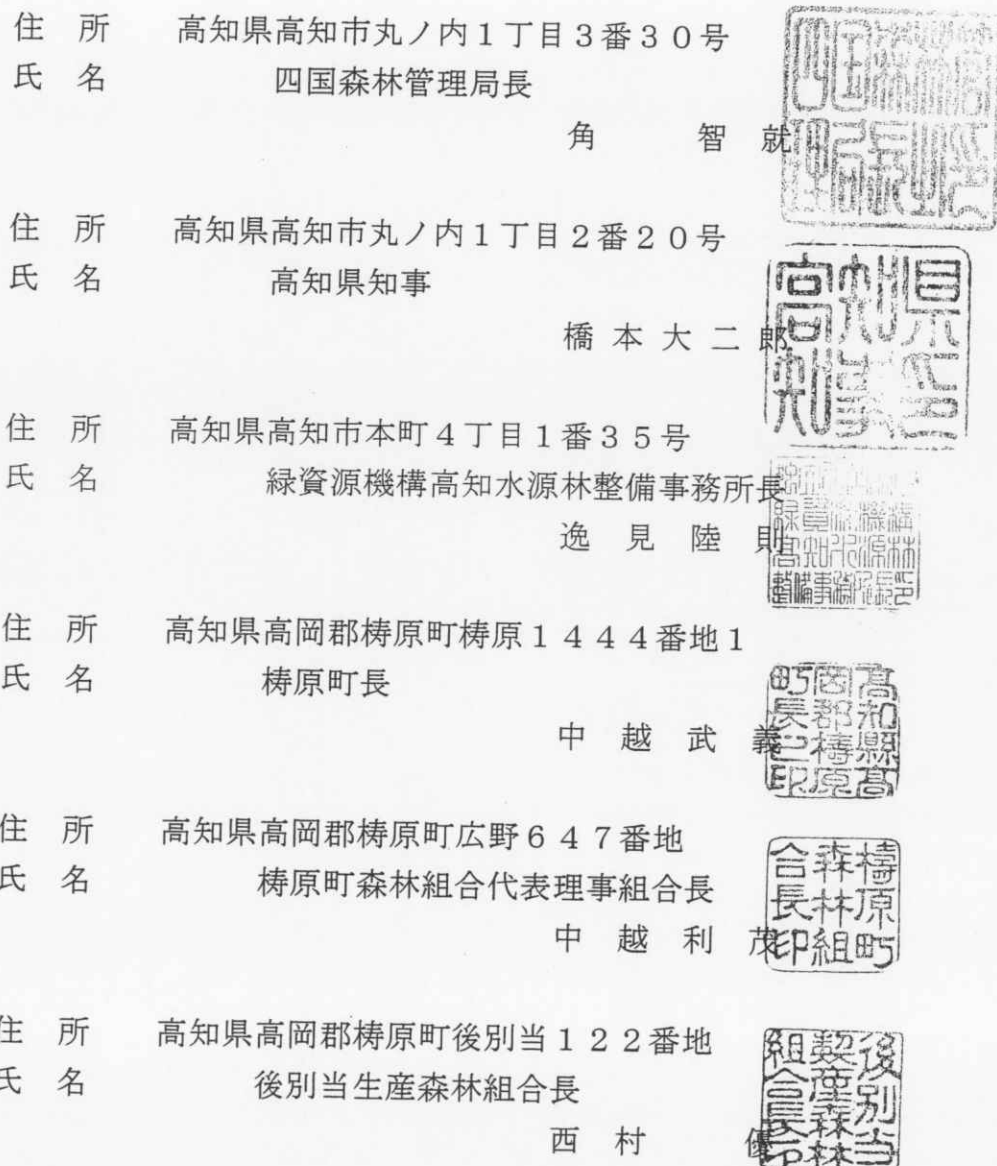 住所 高知県高知市丸ノ内1丁目3番30号
氏名 四国森林管理局長
角 智就
住所 高知県高知市丸ノ内1丁目2番20号
氏名 高知県知事
橋本大二郎
高知県知事印
住所 高知県高知市本町4丁目1番35号
氏名 緑資源機構高知水源林整備事務所長
逸見陸則
住所 高知県高岡郡梼原町梼原1444番地1
氏名 梼原町長
中越武義
高知縣高岡郡檮原町長之印
住所 高知県高岡郡梼原町広野647番地
氏名 梼原町森林組合代表理事組合長
中越利茂
檮原町森林組合長印
住所 高知県高岡郡梼原町後別当122番地
氏名 後別当生産森林組合長
西村 優